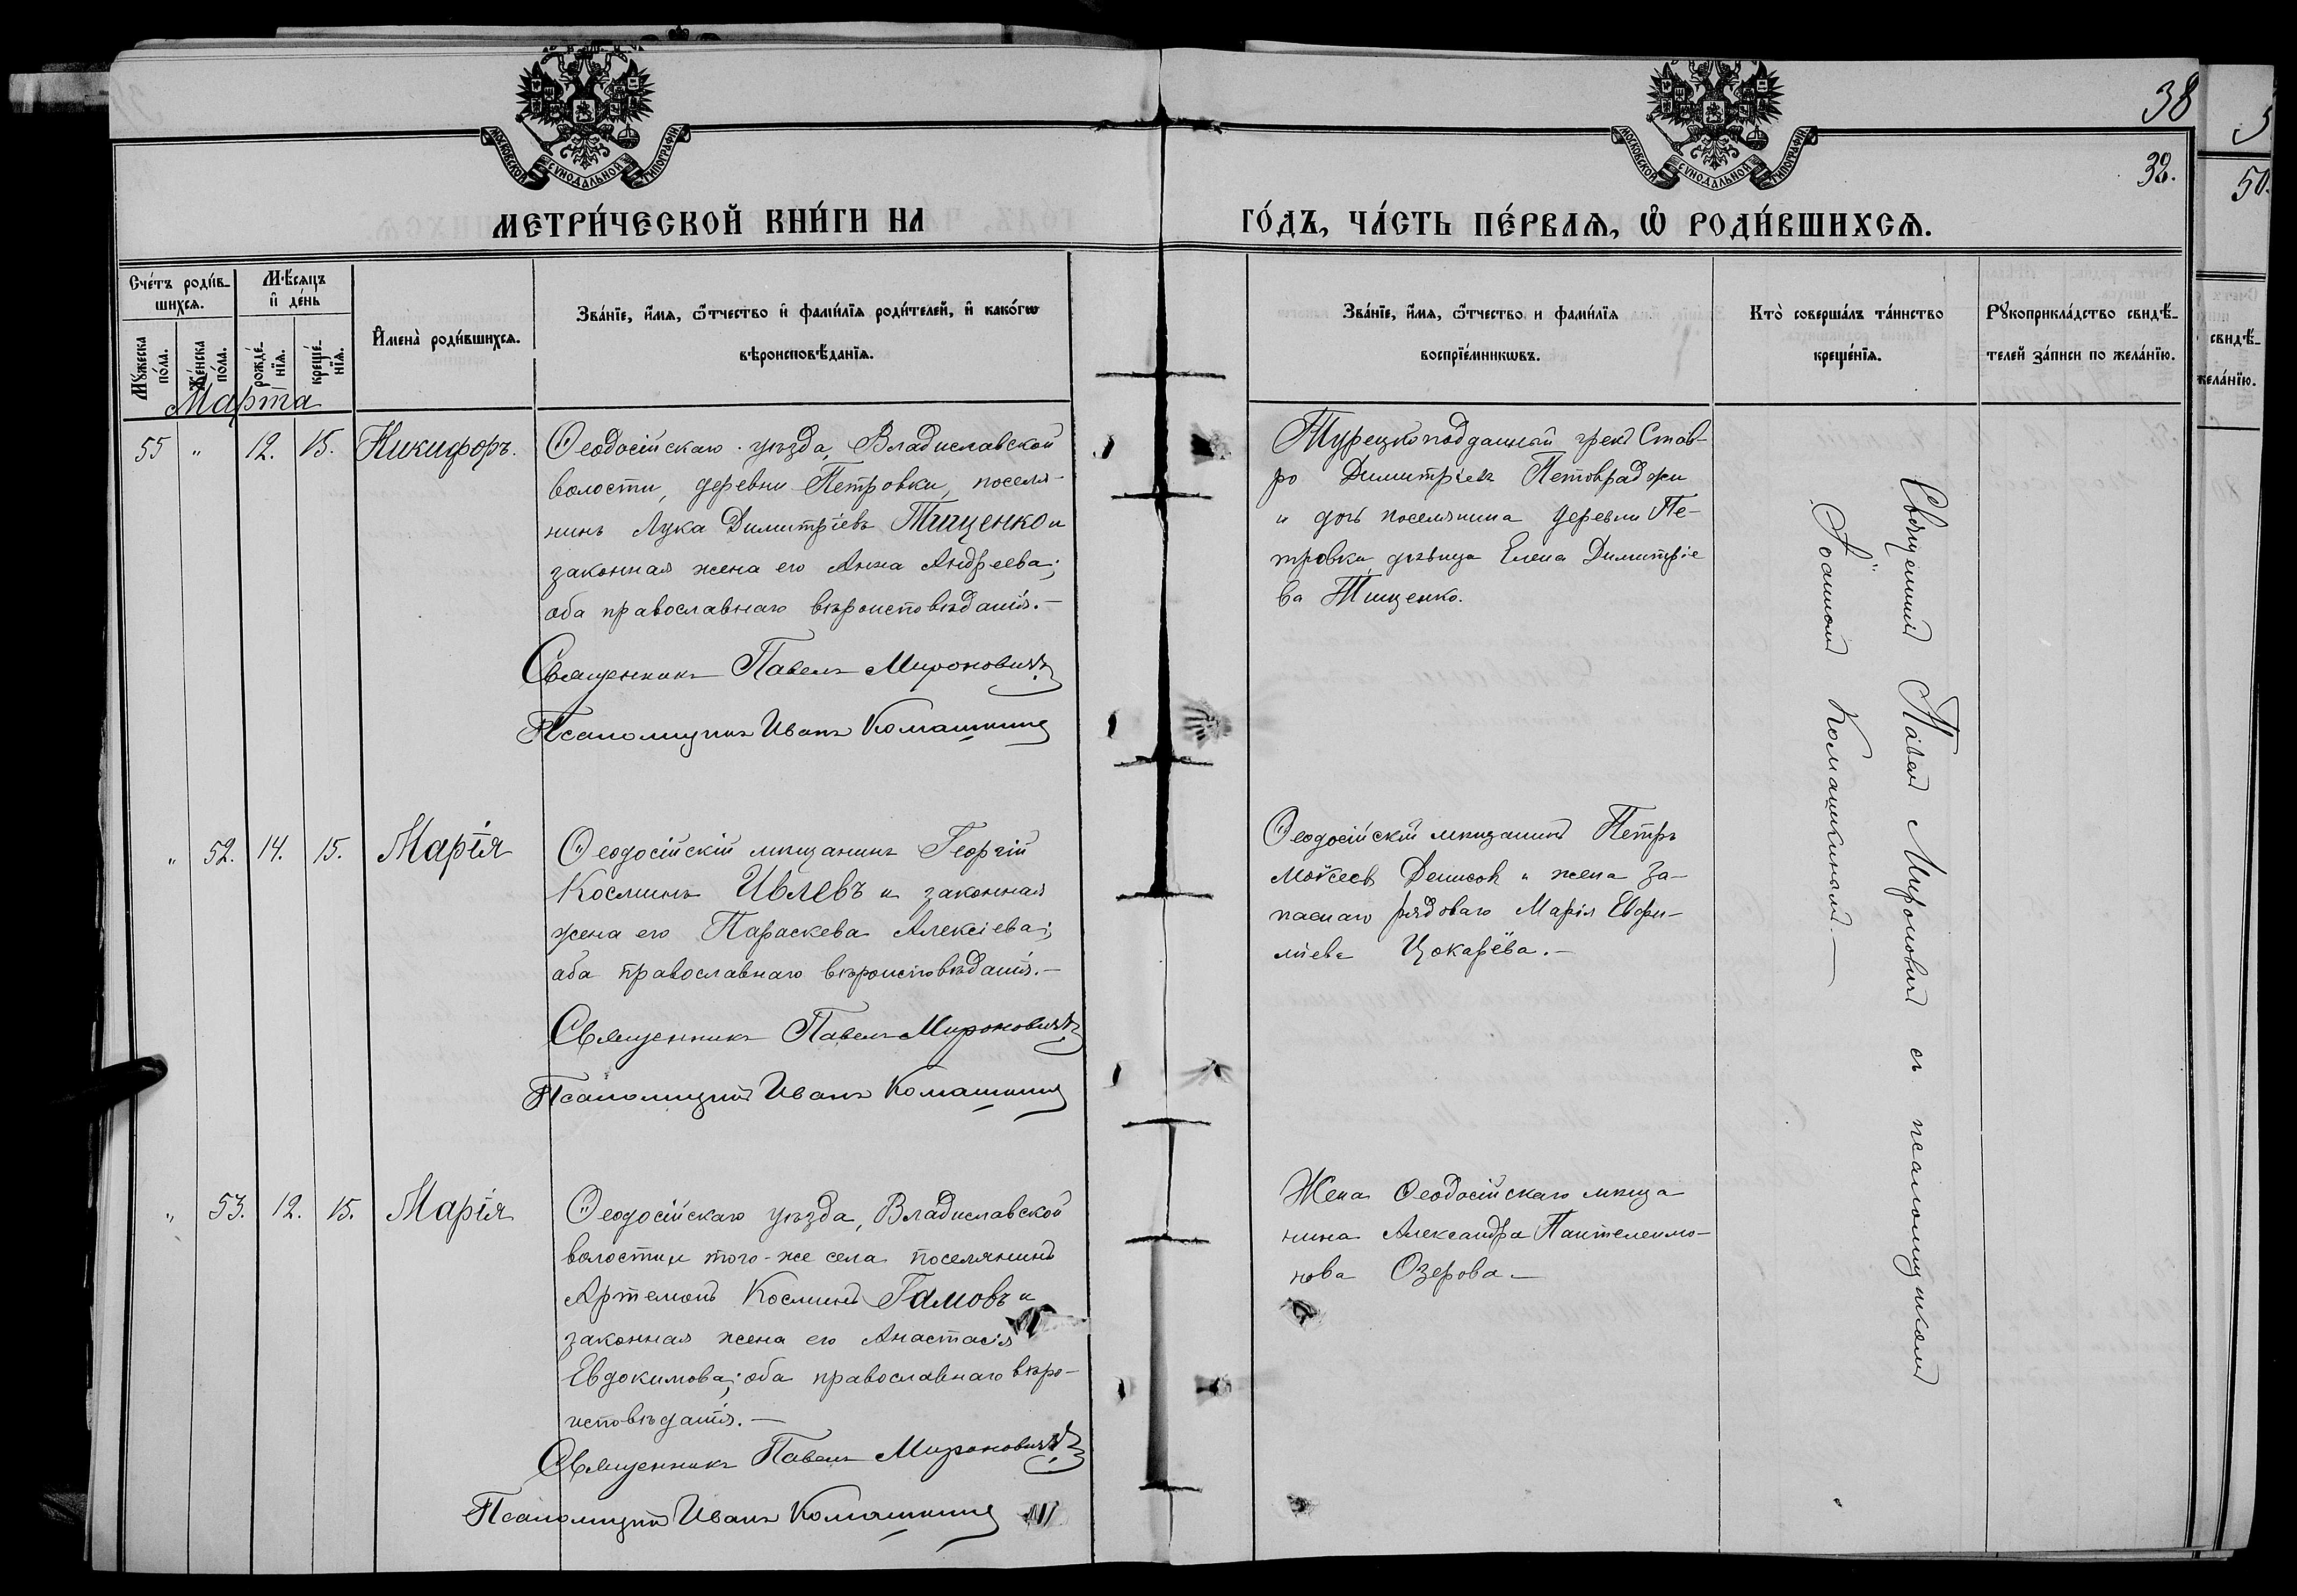 МОСКОВСКОЙ СѴНОДАЛЬНОЙ ТИПОГРАФІИ
МОСКОВСКОЙ СѴНОДАЛЬНОЙ ТИПОГРАФІИ
38
32.
50.
МЕТРИ́ЧЕСКОЙ КНИ́ГИ НА
ГО́ДЪ, ЧА́СТЬ ПЕ́РВАѦ, Ѡ҆ РОДИ́ВШИХСѦ.
Сче́тъ роди́в-
шихсѧ.
Мꙋ́жеска по́ла.
Же́нска по́ла.
Мѣ́сѧцъ
и҆ де́нь
рожде́-нїѧ.
креще́-нїѧ.
И҆мена̀ роди́вшихсѧ.
Зва́нїе, и҆́мѧ, ѻ҆́тчество и҆ фами́лїѧ роди́телей, и҆ како́гѡ
вѣроисповѣ́данїѧ.
Зва́нїе, и҆́мѧ, ѻ҆́тчество и фами́лїѧ
воспрїе́мникѡвъ.
Кто̀ соверша́лъ та́инство
креще́нїѧ.
Рꙋкоприкла́дство свидѣ́-
телей за́писи по жела́нїю.
свидѣ́-
жела́нїю.
Марта
55 " 12. 15. Никифоръ.
Ѳеодосійскаго уѣзда, Владиславской
волости, деревни Петровки, поселя-
нинъ Лука Димитріевъ Тищенко и
законная жена его Анна Андреева;
оба православнаго вѣроисповѣданія.—
Священникъ Павелъ Мироновичъ
Псаломщикъ Иванъ Комашкинъ
Турецкоподданный грекъ Став-
ро Димитріевъ
и дочь поселянина деревни Пе-
тровки дѣвица Елена Димитріе
ва Тищенко.
Священникъ Павелъ Мироновичъ съ псаломщикомъ
Іоанномъ Комашкинымъ.—
" 52. 14. 15. Марія
Ѳеодосійскій мѣщанинъ Георгій
Косминъ Ивлевъ и законная
жена его Параскева Алексіева;
оба православнаго вѣроисповѣданія.—
Священникъ Павелъ Мироновичъ
Псаломщикъ Иванъ Комашкинъ
Ѳеодосійскій мѣщанинъ Петръ
Моѵсеевъ Денисовъ и жена за-
паснаго рядоваго Марія Евфи-
міева Цокарёва.—
" 53. 12. 15. Марія
Ѳеодосійскаго уѣзда, Владиславской
волости и того-же села поселянинъ
Артемонъ Косминъ Гамовъ и
законная жена его Анастасія
Евдокимова; оба православнаго вѣро-
исповѣданія.—
Священникъ Павелъ Мироновичъ
Псаломщикъ Иванъ Комашкинъ
Жена Ѳеодосійскаго мѣща
нина Александра Пантелеимо-
нова Озерова.—